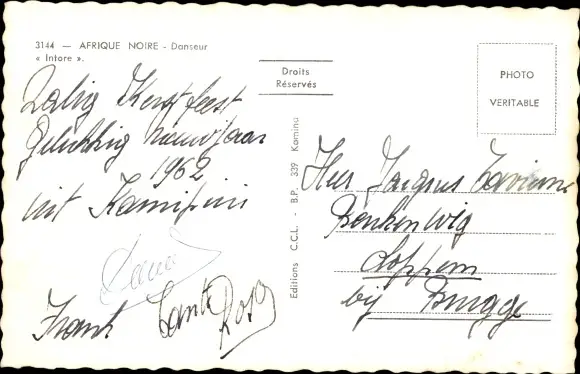 3144 — AFRIQUE NOIRE - Danseur
« Intore ».
Droits
Réservés
PHOTO
VERITABLE
Editions C.C.L. - B.P. 339 Kamina
Zalig Kerstfeest
Gelukkig nieuwjaar
1962
uit Kamipini
Frank Tante Rosa
Heer Jacques
Loppem
bij Brugge